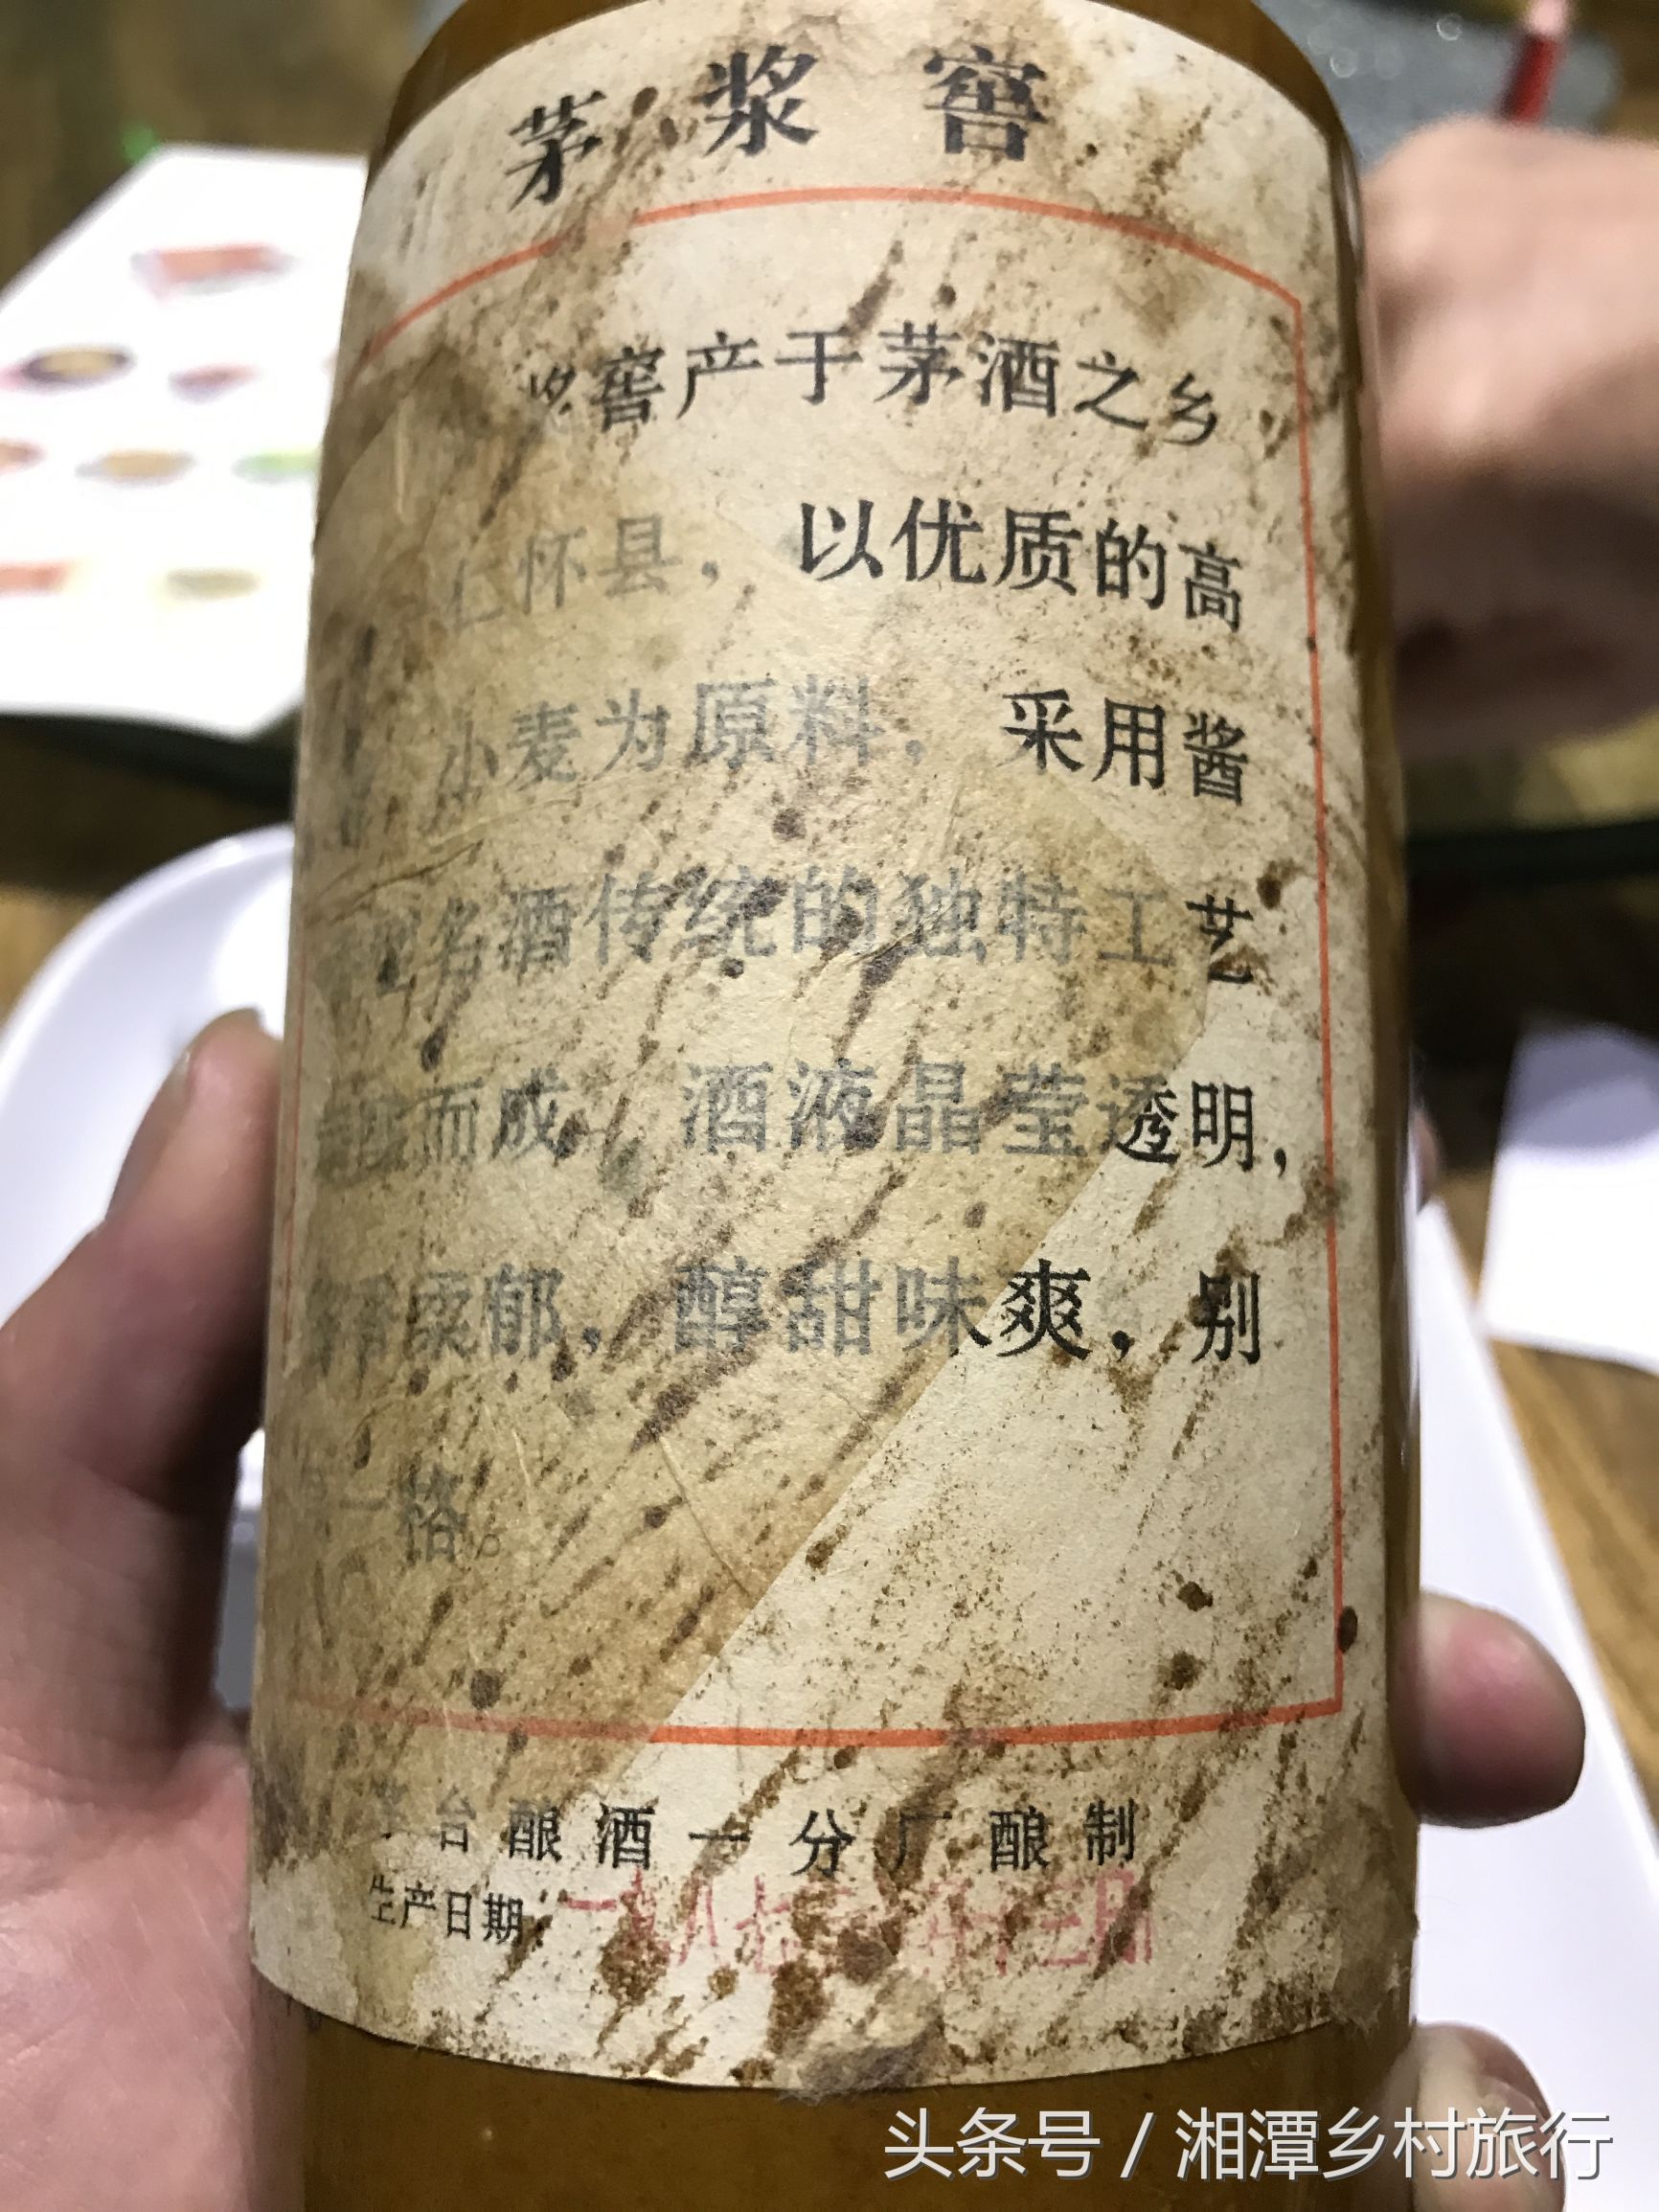 茅浆窖
浆窖产于茅酒之乡
仁怀县，以优质的高
小麦为原料，采用酱
名酒传统的独特工艺
而成，酒液晶莹透明，
郁，醇甜味爽，别
一格。
茅台酿酒一分厂酿制
生产日期：一九八七年十二月
头条号 / 湘潭乡村旅行